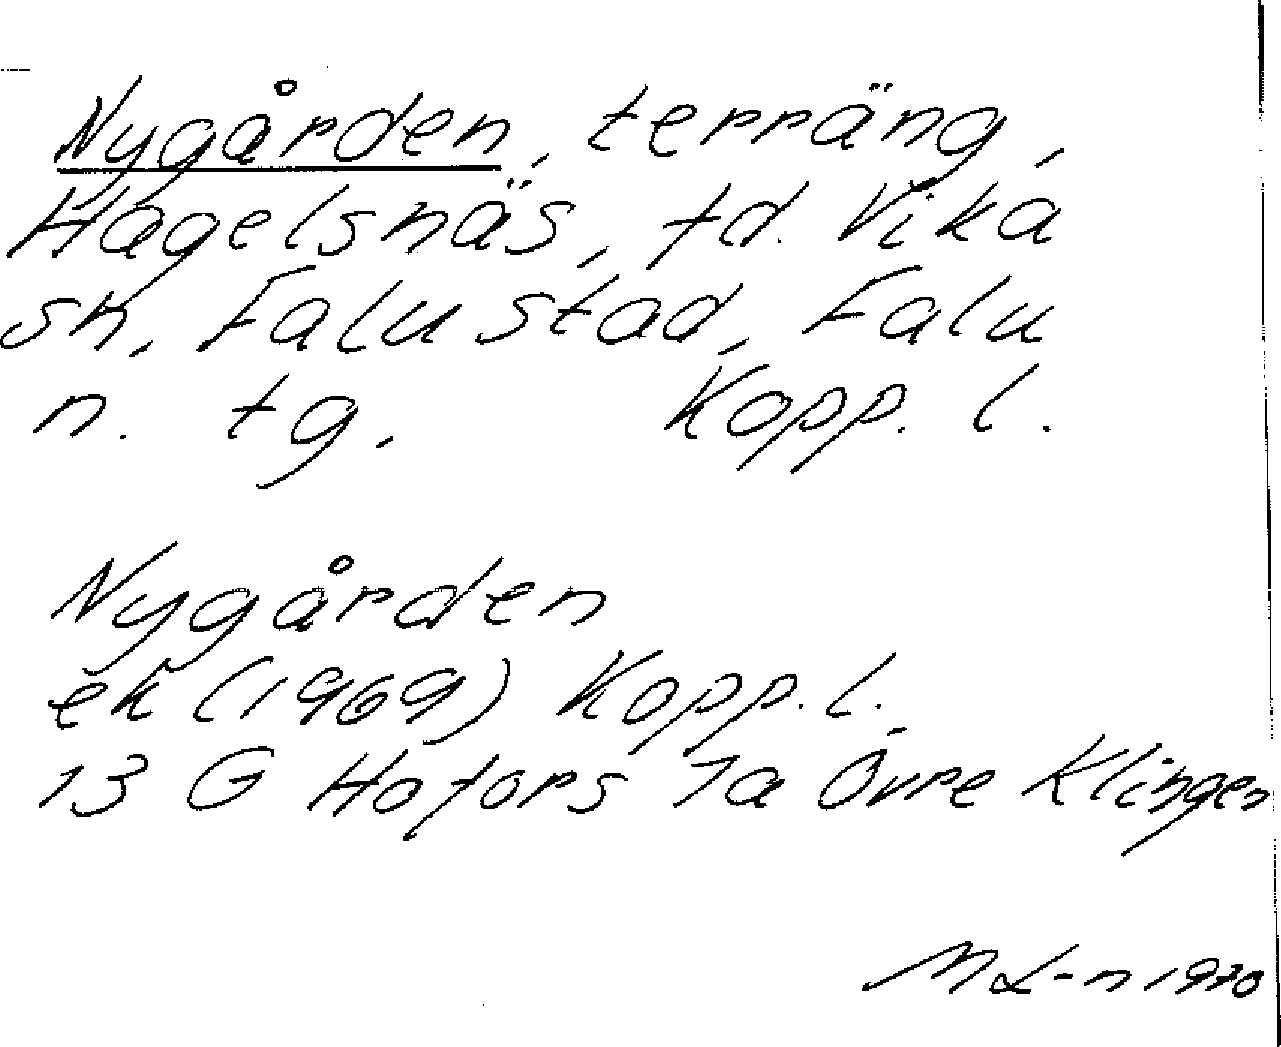 Nygården, terräng,
Hagelsnäs, fd. Vika
sn, Falu stad, Falu
n. tg. Kopp. l.
Nygården
ek (1969) Kopp. l.
13 G Hofors 7a Övre Klingen
M L-n 1970